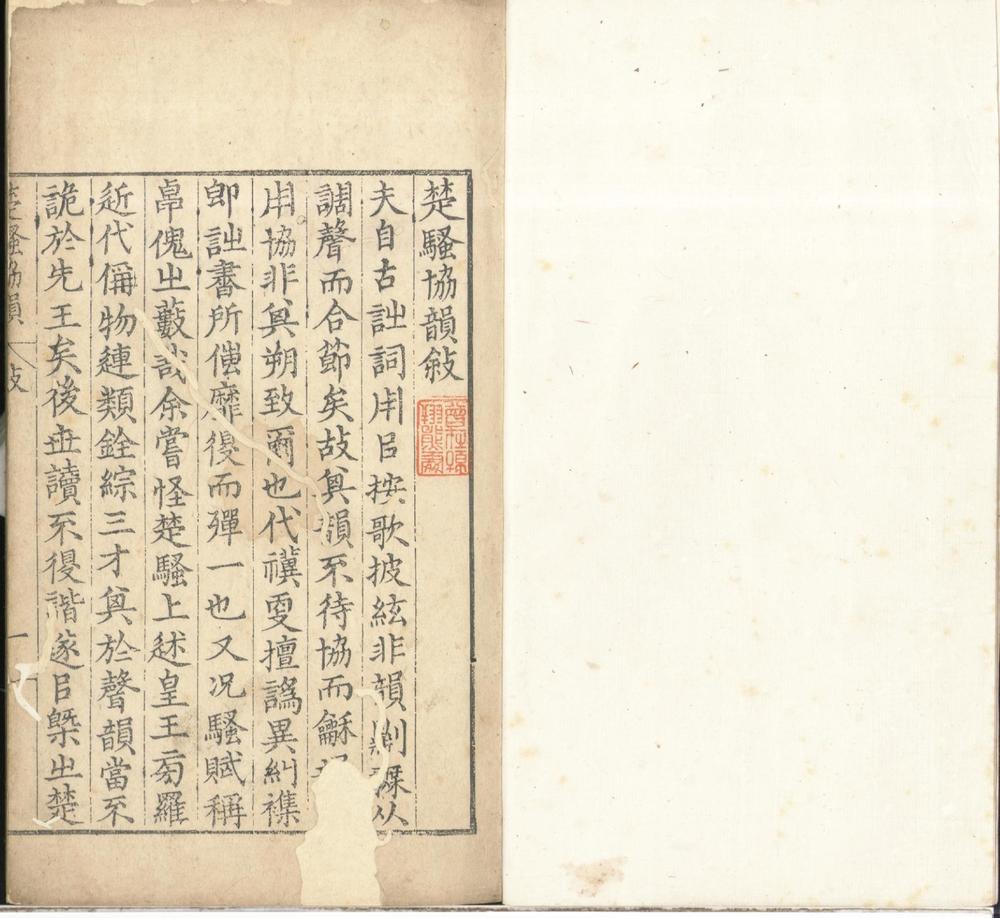 楚騷協韻敘
夫自古詩詞用㠯按歌披絃非韻則从
調聲而合節矣故其韻不待協而龢
用協非其朔致爾也代禩更擅譌異糾襍
即詩書所靡復而殫一也又况騷賦稱
傀之藪哉余嘗怪楚騷上述皇王㫄羅
近代偁物連類銓綜三才其於聲韻當不
詭於先王矣後世讀不復諧遂㠯槩之楚
楚騷協韻 敘 一